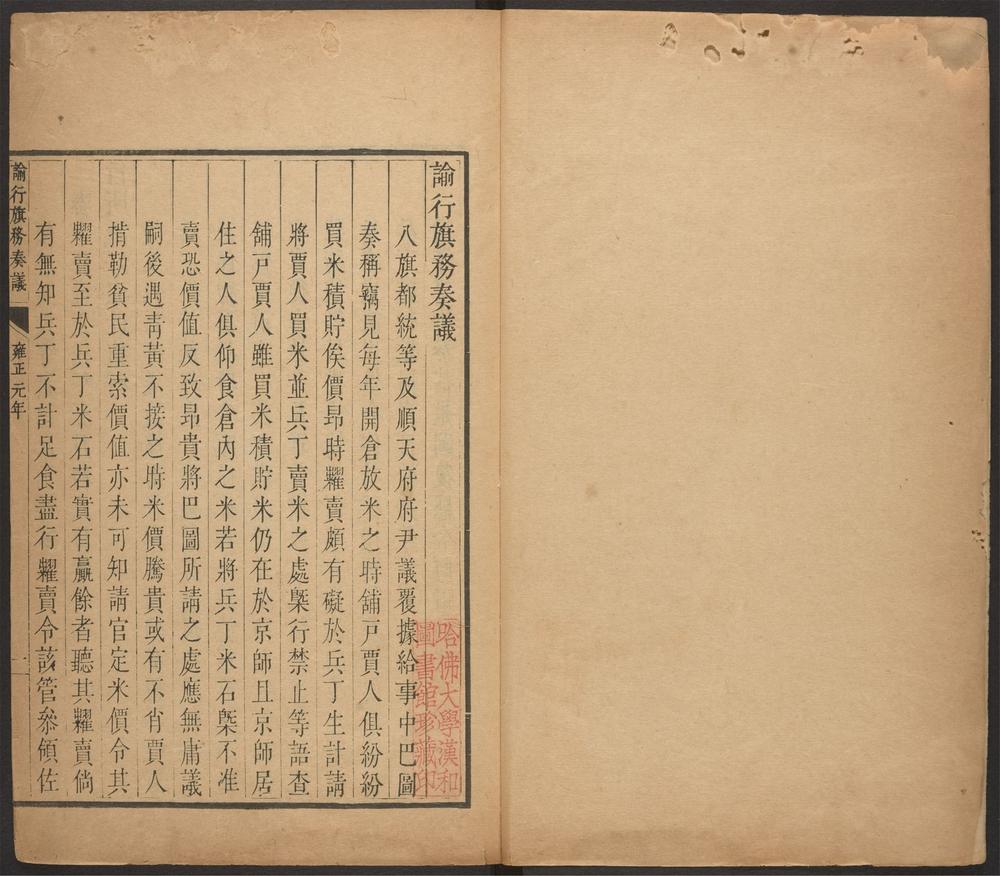 諭行旗務奏議
八旗都統等及順天府府尹議覆據給事中巴圖
奏稱竊見每年開倉放米之時舖戶賈人俱紛紛
買米積貯俟價昂時糶賣頗有礙於兵丁生計請
將賈人買米並兵丁賣米之處槩行禁止等語查
舖戶賈人雖買米積貯米仍在於京師且京師居
住之人俱仰食倉內之米若將兵丁米石槩不准
賣恐價值反致昂貴將巴圖所請之處應無庸議
嗣後遇靑黃不接之時米價騰貴或有不肖賈人
掯勒貧民重索價值亦未可知請官定米價令其
糶賣至於兵丁米石若實有贏餘者聽其糶賣倘
有無知兵丁不計足食盡行糶賣令該管叅領佐
諭行旗務奏議 雍正元年 一
哈佛大學漢和
圖書館珍藏印